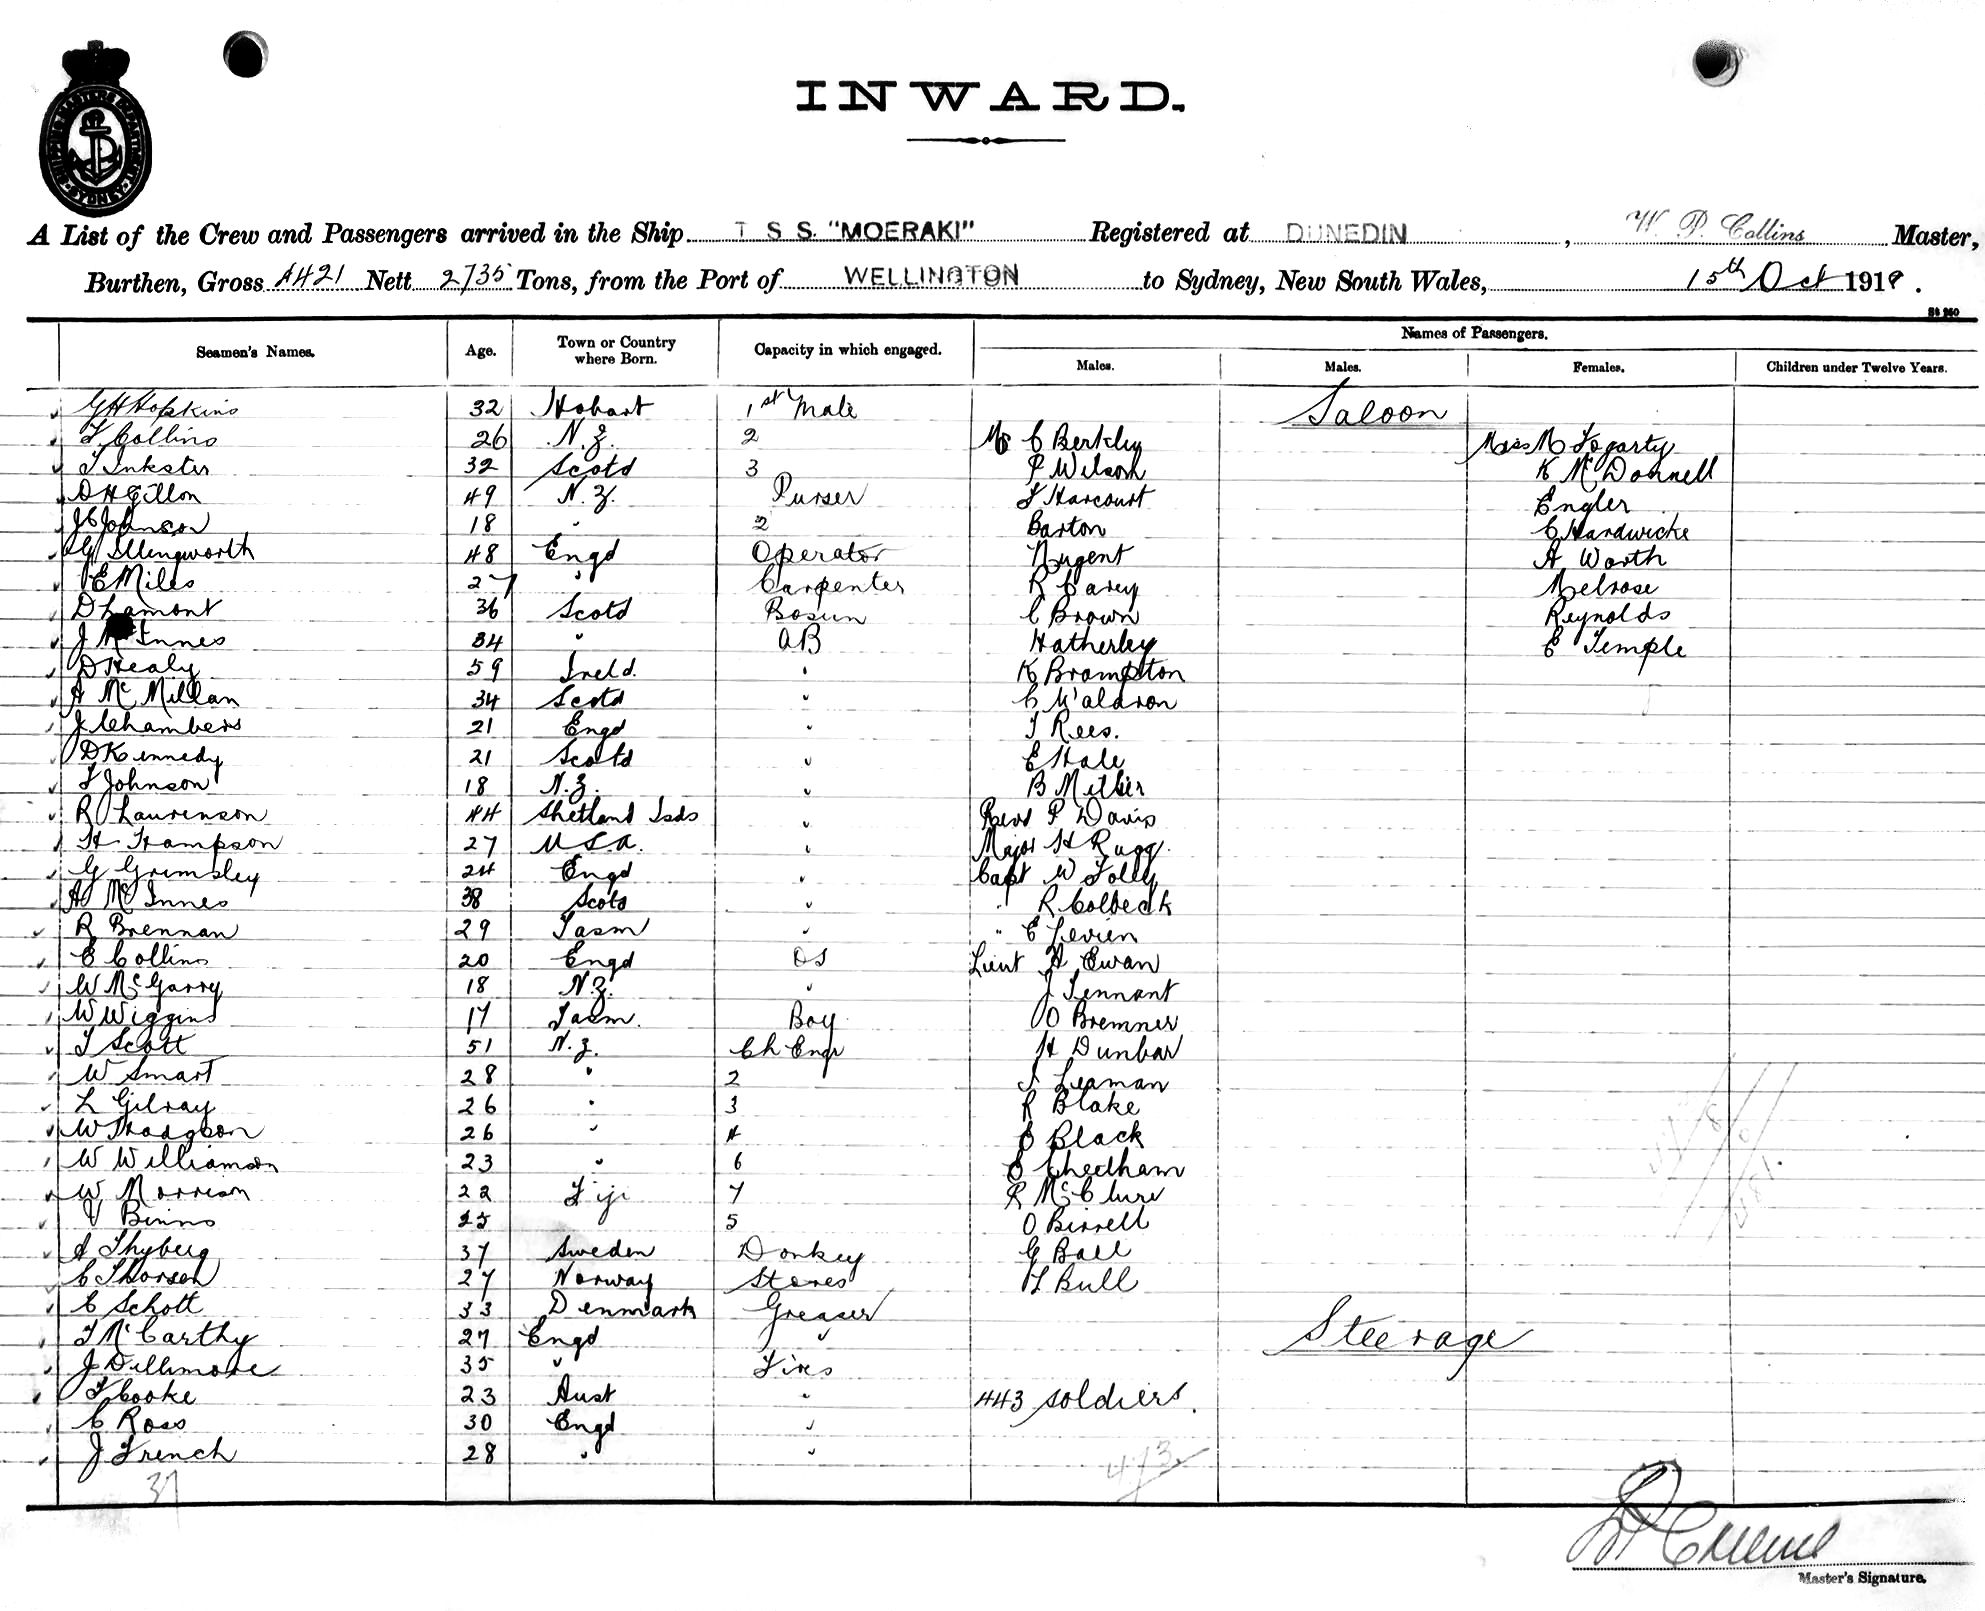 INWARD.
A List of the Crew and Passengers arrived in the Ship T S S. "MOERAKI" Registered at DUNEDIN, W. P. Collins Master,
Burthen, Gross 4421 Nett 2735 Tons, from the Port of WELLINGTON to Sydney, New South Wales, 15th Oct 1918.
Seamen's Names. Age. Town or Country where Born. Capacity in which engaged. Names of Passengers.
Males. Males. Females. Children under Twelve Years.
G H Hopkins 32 Hobart 1st Mate Saloon
T Collins 26 N.Z. 2 Mr C Berkley Miss M Fogarty
T Inkster 32 Scotd 3 P Wilson K McDonnell
D H Gillon 49 N.Z. Purser F Harcourt Engler
J C Johnson 18 " 2 Barton C Hardwicke
G Illingworth 48 Engd Operator Nugent A Worth
E Miles 27 " Carpenter R Carey Melrose
D Lamont 36 Scotd Bosun C Brown Reynolds
J McInnes 34 " AB Hatherley E Temple
D Healy 59 Ireld. " K Brampton
A McMillan 34 Scotd " C Waldron
J Chambers 21 Engd " T Rees.
D Kennedy 21 Scotd " E Hale
T Johnson 18 N.Z. " B Miller
R Laurenson 44 Shetland Isds " Revd P Davis
H Hampson 27 U S A. " Major H Rugg.
G Grimsley 24 Engd " Capt W Jolly
A McInnes 38 Scotd " " R Colbeck
R Brennan 29 Tasm " " E Levien
E Collins 20 Engd OS Lieut A Ewan
W McGarry 18 N.Z. " J Tennant
W Wiggins 17 Tasm. Boy O Bremner
T Scott 51 N.Z. Ch Engr H Dunbar
W Smart 28 " 2 Leaman
L Gilray 26 " 3 R Blake
W Hodgson 26 " 4 Black
W Williamson 23 " 6 Cheetham
W Morrison 22 Fiji 7 R McClure
V Binns 25 5 O Birrell
A Thyberg 37 Sweden Donkey G Ball
C Thorsen 27 Norway Stores Bull
C Schott 33 Denmark Greaser
T McCarthy 27 Engd " Steerage
J Dillimore 35 " Fires
T Cooke 23 Aust " 443 soldiers.
C Ross 30 Engd "
J French 28 " "
37 473
Master's Signature.